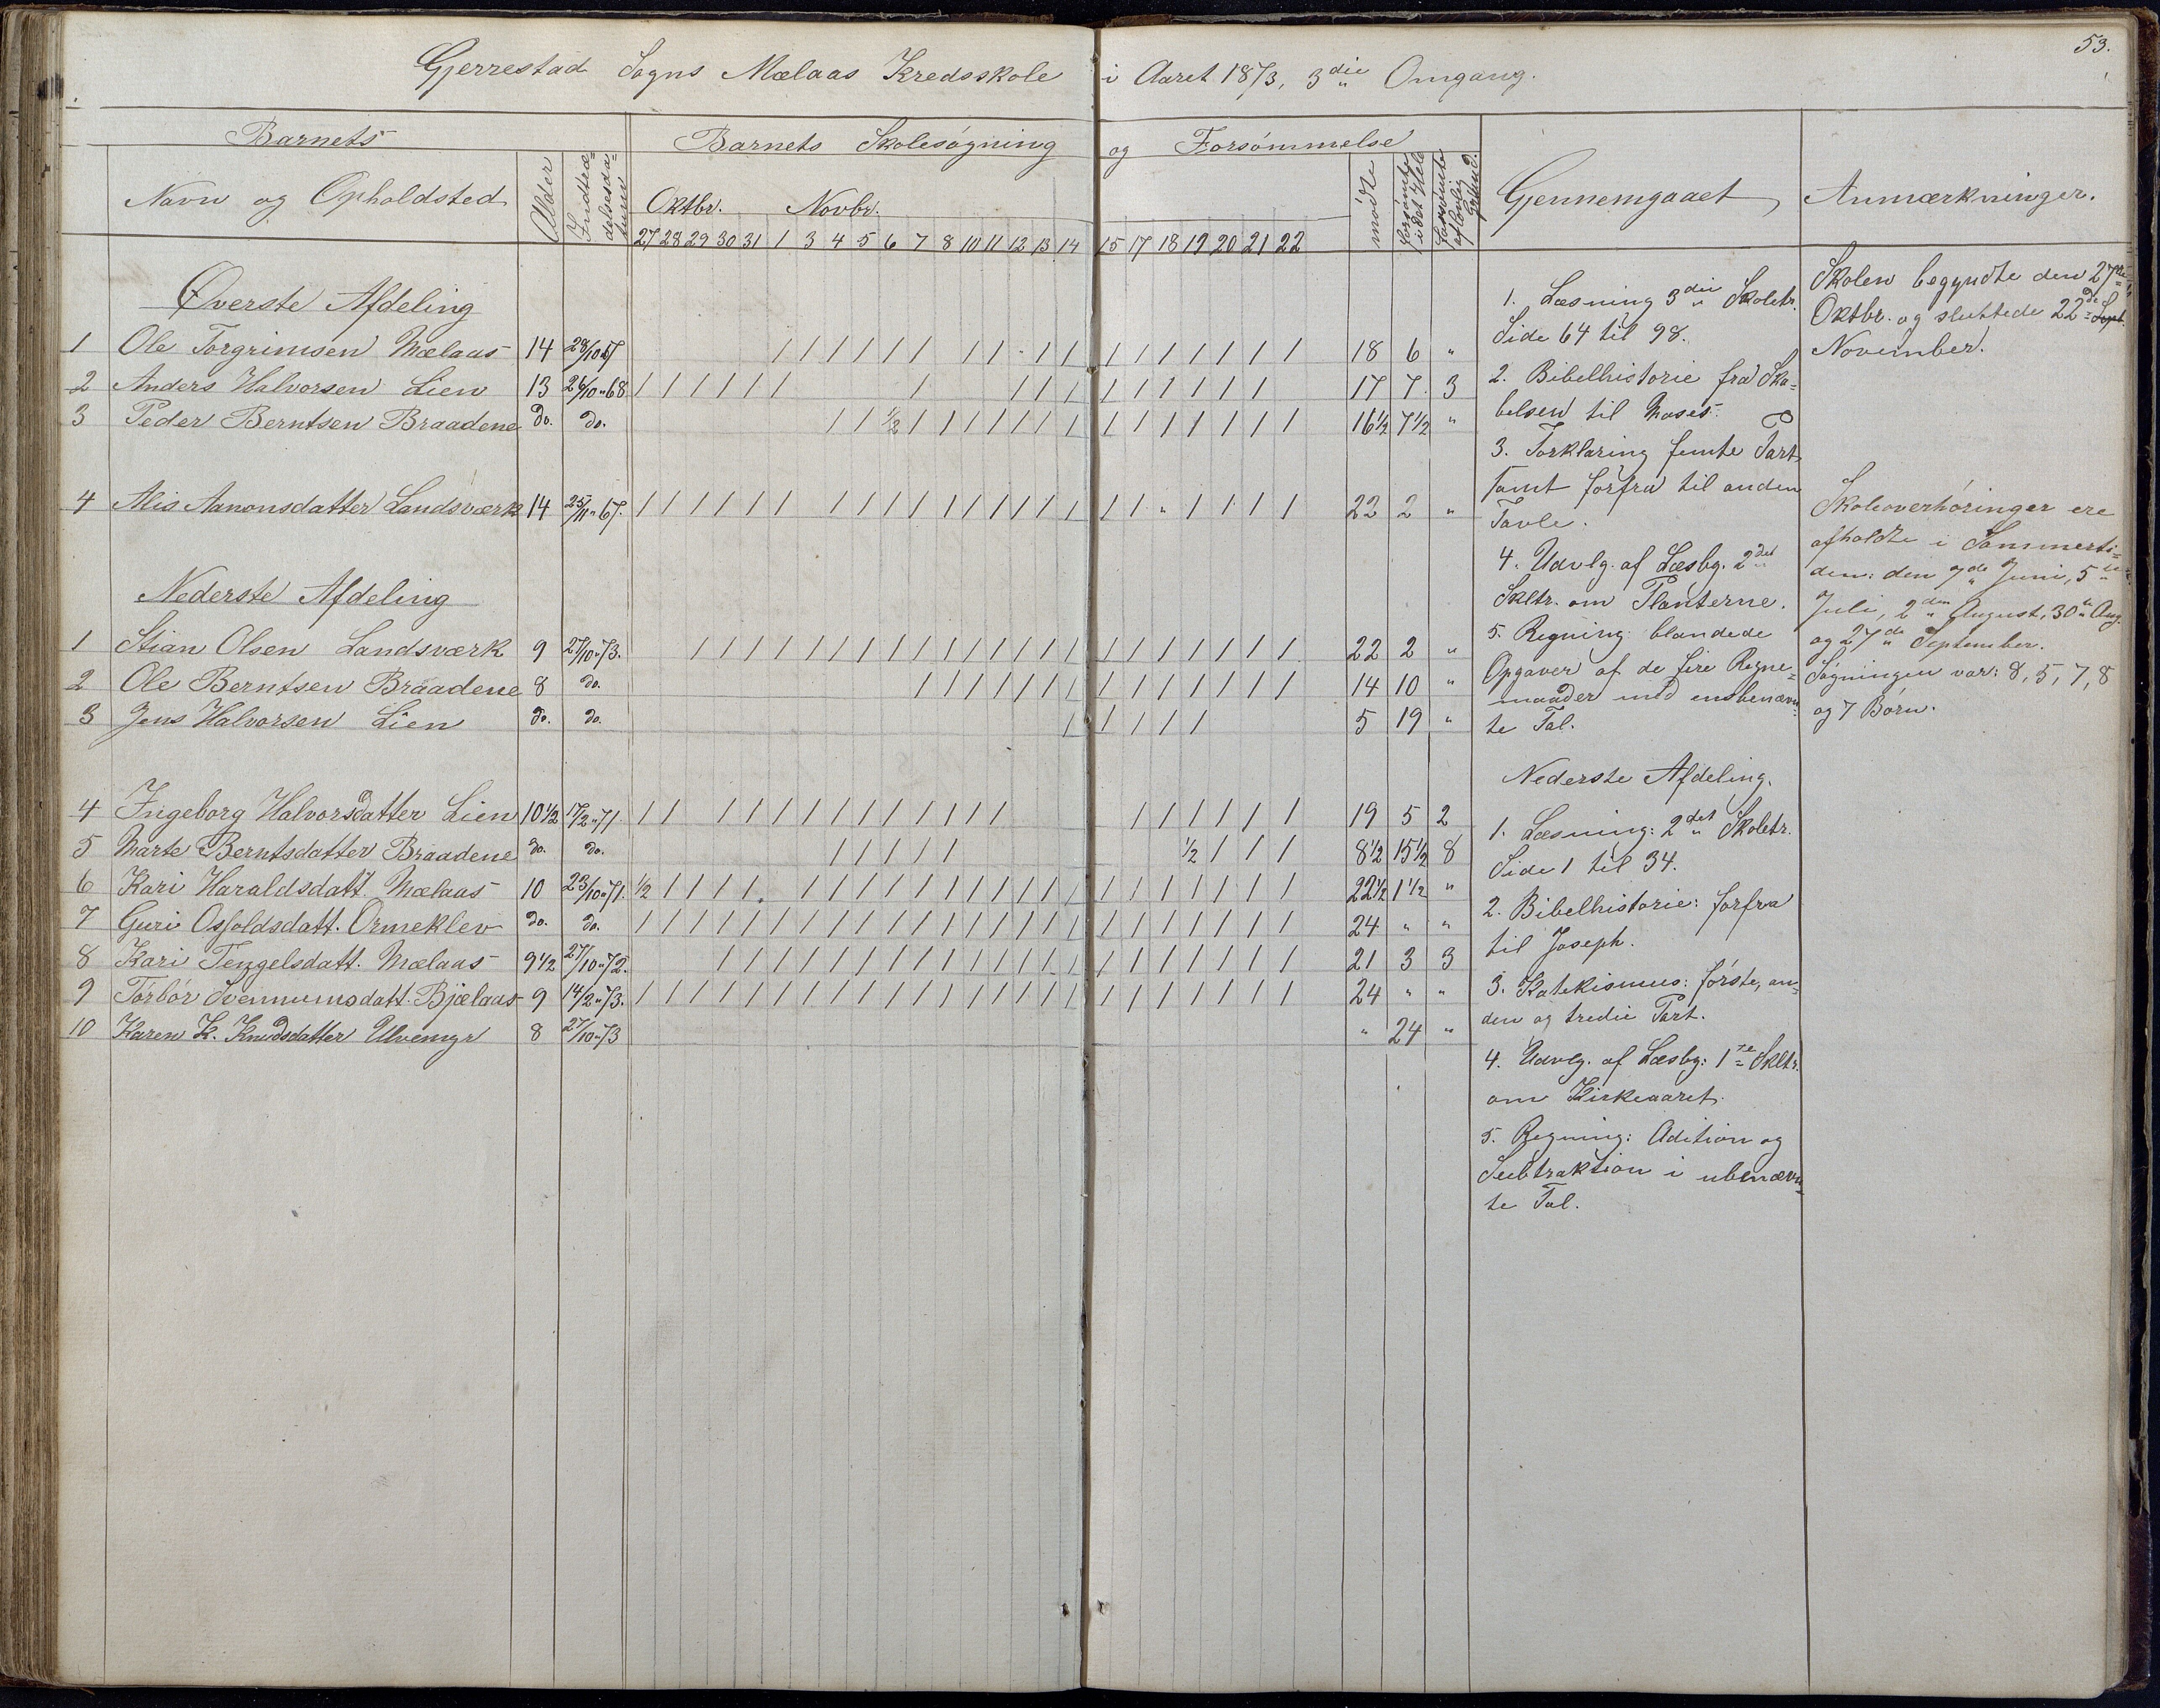 53.
Gjerrestad Sogns Mælaas Kredsskole i Aaret 1873, 3die Omgang.
Barnets
Barnets Skolesøgning og Forsømmelse
Navn og Opholdsted
Alder
Indtræ-
delsesda-
tum
Oktbr. Novbr.
mødte
forsømte
i det Hele
forsømte
af lovlig
Grund.
Gjennemgaaet
Anmærkninger.
27 28 29 30 31 1 3 4 5 6 7 8 10 11 12 13 14 15 17 18 19 20 21 22
Øverste Afdeling
1 Ole Torgrimsen Mælaas 14 28/10 67 / / / / / / / / / / / / / / / / / / 18 6 "
2 Anders Halvorsen Lien 13 26/10 " 68 / / / / / / / / / / / / / / / / / 17 7 3
3 Peder Berntsen Braadene do. do. / / 1/2 / / / / / / / / / / / / / / 16 1/2 7 1/2 "
4 Alis Aanonsdatter Landsværk 14 25/11 " 67. / / / / / / / / / / / / / / / / / / " / / / / 22 2 "
Nederste Afdeling
1 Stian Olsen Landsværk 9 27/10 " 73. / / / / / / / / / / / / / / / / / / / / / / 22 2 "
2 Ole Berntsen Braadene 8 do. / / / / / / / / / / / / / / 14 10 "
3 Jens Halvorsen Lien do. do. / / / / / 5 19 "
4 Ingeborg Halvorsdatter Lien 10 1/2 17/2 " 71 / / / / / / / / / / / / / / / / / / / 19 5 2
5 Marte Berntsdatter Braadene do. do. / / / / / 1/2 / / / 8 1/2 15 1/2 8
6 Kari Haraldsdatt. Mælaas 10 23/10 " 71. 1/2 / / / / / / / / / / / / / / / / / / / / / / 22 1/2 1 1/2 "
7 Guri Osfoldsdatt. Ormeklev do. do. / / / / / / / / / / / / / / / / / / / / / / / / 24 " "
8 Kari Tengelsdatt. Mælaas 9 1/2 27/10 " 72. / / / / / / / / / / / / / / / / / / / / / 21 3 3
9 Torbor Svennumsdatt. Bjælaas 9 14/2 " 73. / / / / / / / / / / / / / / / / / / / / / / / / 24 " "
10 Karen K. Knudsdatter Ulvemyr 8 27/10 " 73 " 24 "
1. Læsning 3die Skoletr.
Side 64 til 98.
2. Bibelhistorie fra Ska-
belsen til Moses.
3. Forklaring femte Part
samt forfra til anden
Tavle.
4. Udvlg. af Læsbg. 2det
Skltr. om Planterne.
5. Regning: blandede
Opgaver af de fire Regne-
maader med ensbenævn-
te Tal.
Nederste Afdeling.
1. Læsning: 2det Skoletr.
Side 1 til 34.
2. Bibelhistorie: forfra
til Joseph.
3. Katekismus: første, an-
den og tredie Part.
4. Udvlg. af Læsbg: 1te Skltr.
om Kirkeaaret.
5. Regning: Adition og
Subtraktion i ubenævn-
te Tal.
Skolen begyndte den 27de
Oktbr. og sluttede 22de Sept.
November.
Skoleoverhøringer ere
afholdte i Sommerti-
den: den 7de Juni, 5te
Juli, 2den August, 30te Aug.
og 27de September.
Søgningen var: 8, 5, 7, 8
og 7 Børn.